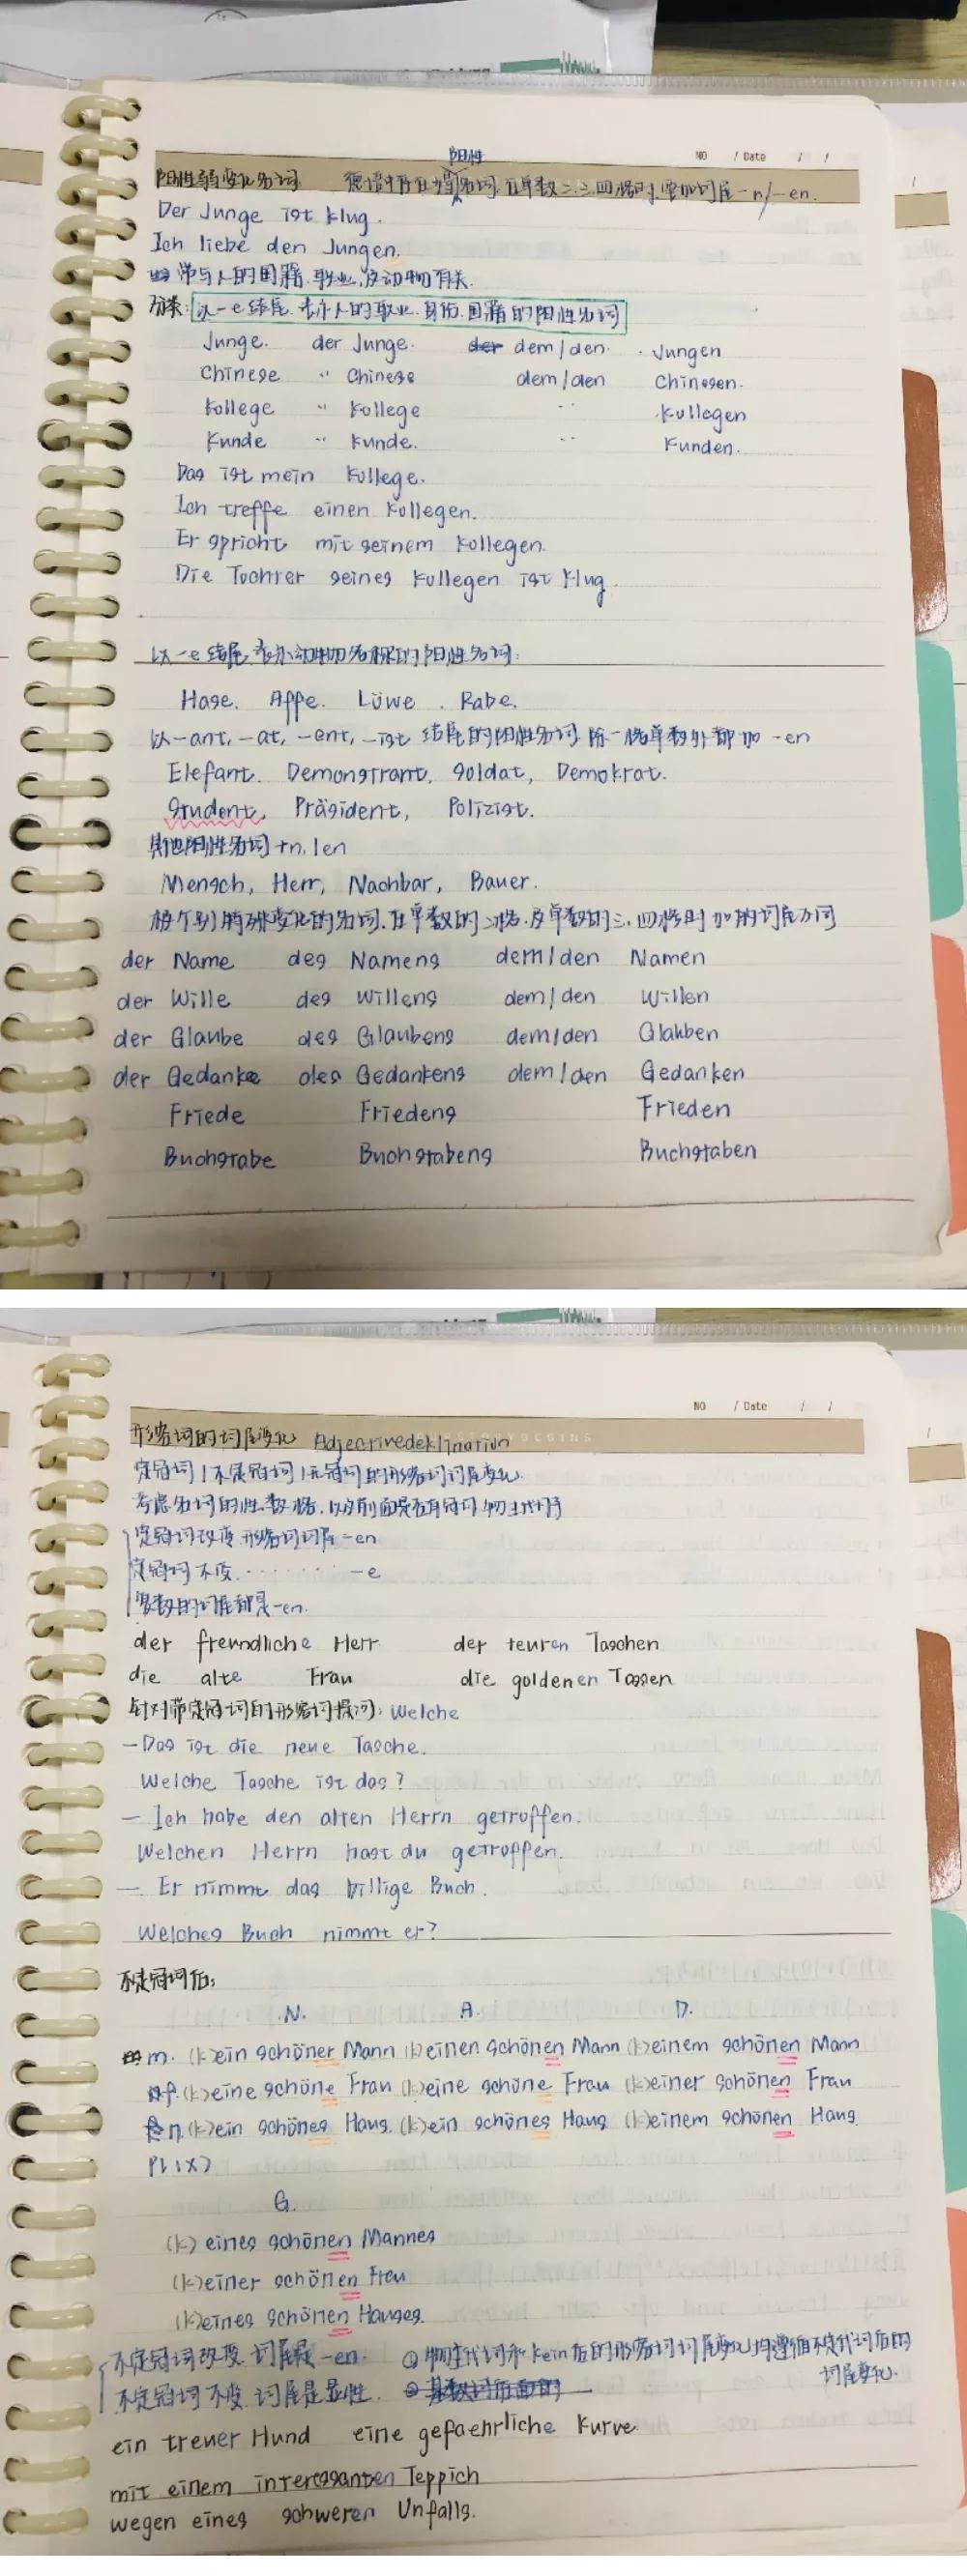 NO / Date / /
阳性
阳性弱变化名词 德语中存在当名词,在单数二、三、四格时,需加词尾-n/-en.
Der Junge ist klug.
Ich liebe den Jungen.
常与人的国籍,职业,及动物有关.
分类: 以-e结尾.表示人的职业.身份.国籍的阳性名词
Junge. der Junge. dem/den. Jungen
Chinese " Chinese dem/den Chinesen.
Kollege " Kollege " Kollegen
Kunde " Kunde. " Kunden.
Das ist mein Kollege.
Ich treffe einen Kollegen.
Er spricht mit seinem Kollegen.
Die Tochter seines Kollegen ist klug.
以-e结尾,表示动物名称的阳性名词:
Hase. Affe. Löwe. Rabe.
以-ant, -at, -ent, -ist 结尾的阳性名词,除一格单数外都加 -en
Elefant. Demonstrant, Soldat, Demokrat.
Student, Präsident, Polizist.
其他阳性名词+n, len
Mensch, Herr, Nachbar, Bauer.
极个别特殊变化的名词,在单数的二格,及单数的三,四格时加的词尾不同
der Name des Namens dem/den Namen
der Wille des Willens dem/den Willen
der Glaube des Glaubens dem/den Glauben
der Gedanke des Gedankens dem/den Gedanken
Friede Friedens Frieden
Buchstabe Buchstabens Buchstaben
NO / Date / /
形容词的词尾变化 Adjectivedeklination
定冠词/不定冠词/无冠词的形容词词尾变化
考虑名词的性.数.格,以及前面是否有冠词,物主代词
定冠词改变,形容词词尾-en
定冠词不变.········-e
复数的词尾都是-en.
der freundliche Herr der teuren Taschen
die alte Frau die goldenen Tassen
针对带定冠词的形容词提问: Welche
-Das ist die neue Tasche.
Welche Tasche ist das?
- Ich habe den alten Herrn getroffen.
Welchen Herrn hast du getroffen.
- Er nimmt das billige Buch.
Welches Buch nimmt er?
不定冠词后:
N. A. D.
m. (k)ein schöner Mann (k)einen schönen Mann (k)einem schönen Mann
f. (k)eine schöne Frau (k)eine schöne Frau (k)einer schönen Frau
n. (k)ein schönes Haus. (k)ein schönes Haus (k)einem schönen Haus.
Pl (X)
G.
(k) eines schönen Mannes
(k)einer schönen Frau
(k)eines schönen Hauses.
不定冠词改变 词尾是-en. ①物主代词和kein后的形容词词尾变化均遵循不定代词后的
词尾变化.
不定冠词不变 词尾是显性. ②
ein treuer Hund eine gefaehrliche Kurve
mit einem interessanten Teppich
wegen eines schweren Unfalls.